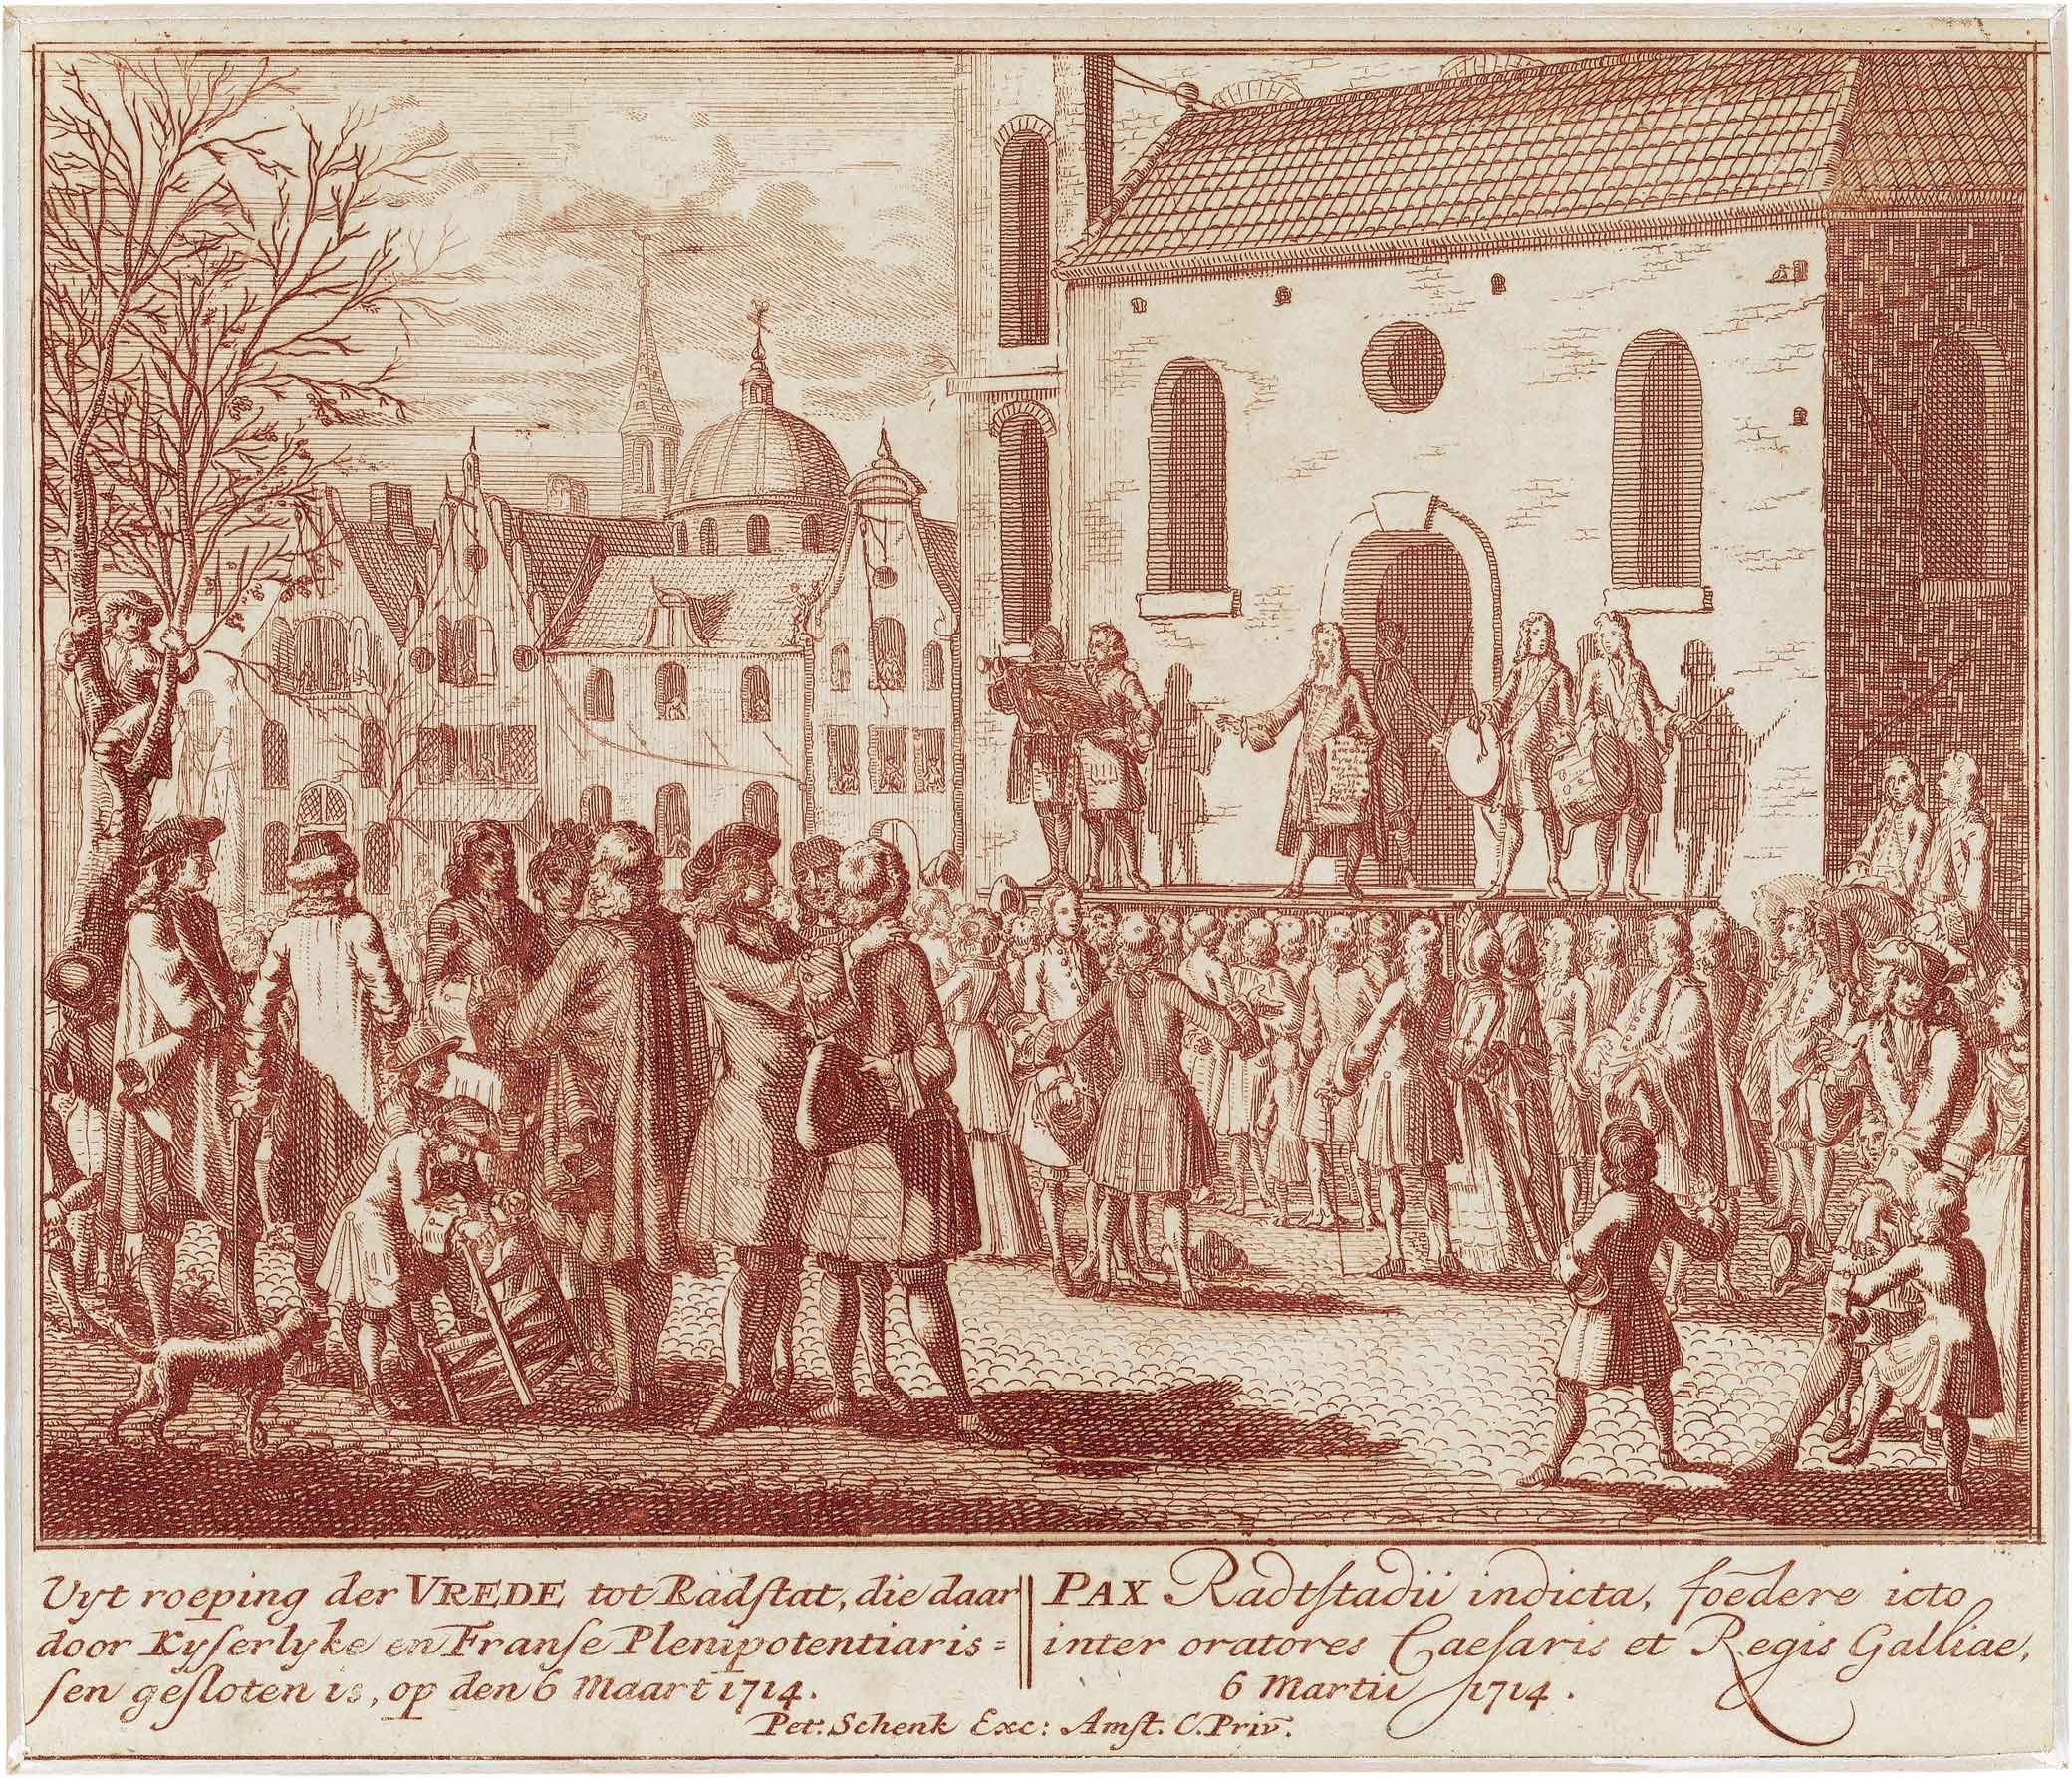 Uyt roeping der VREDE tot Radſtat, die daar
door Kyſerlyke en Franſe Plenipotentiariſ=
ſen geſloten is, op den 6 Maart 1714.
PAX Radtſtadii indicta, foedere icto
inter oratores Caeſaris et Regis Galliae,
6 Martii 1714.
Pet: Schenk Exc: Amſt. C. Priv.